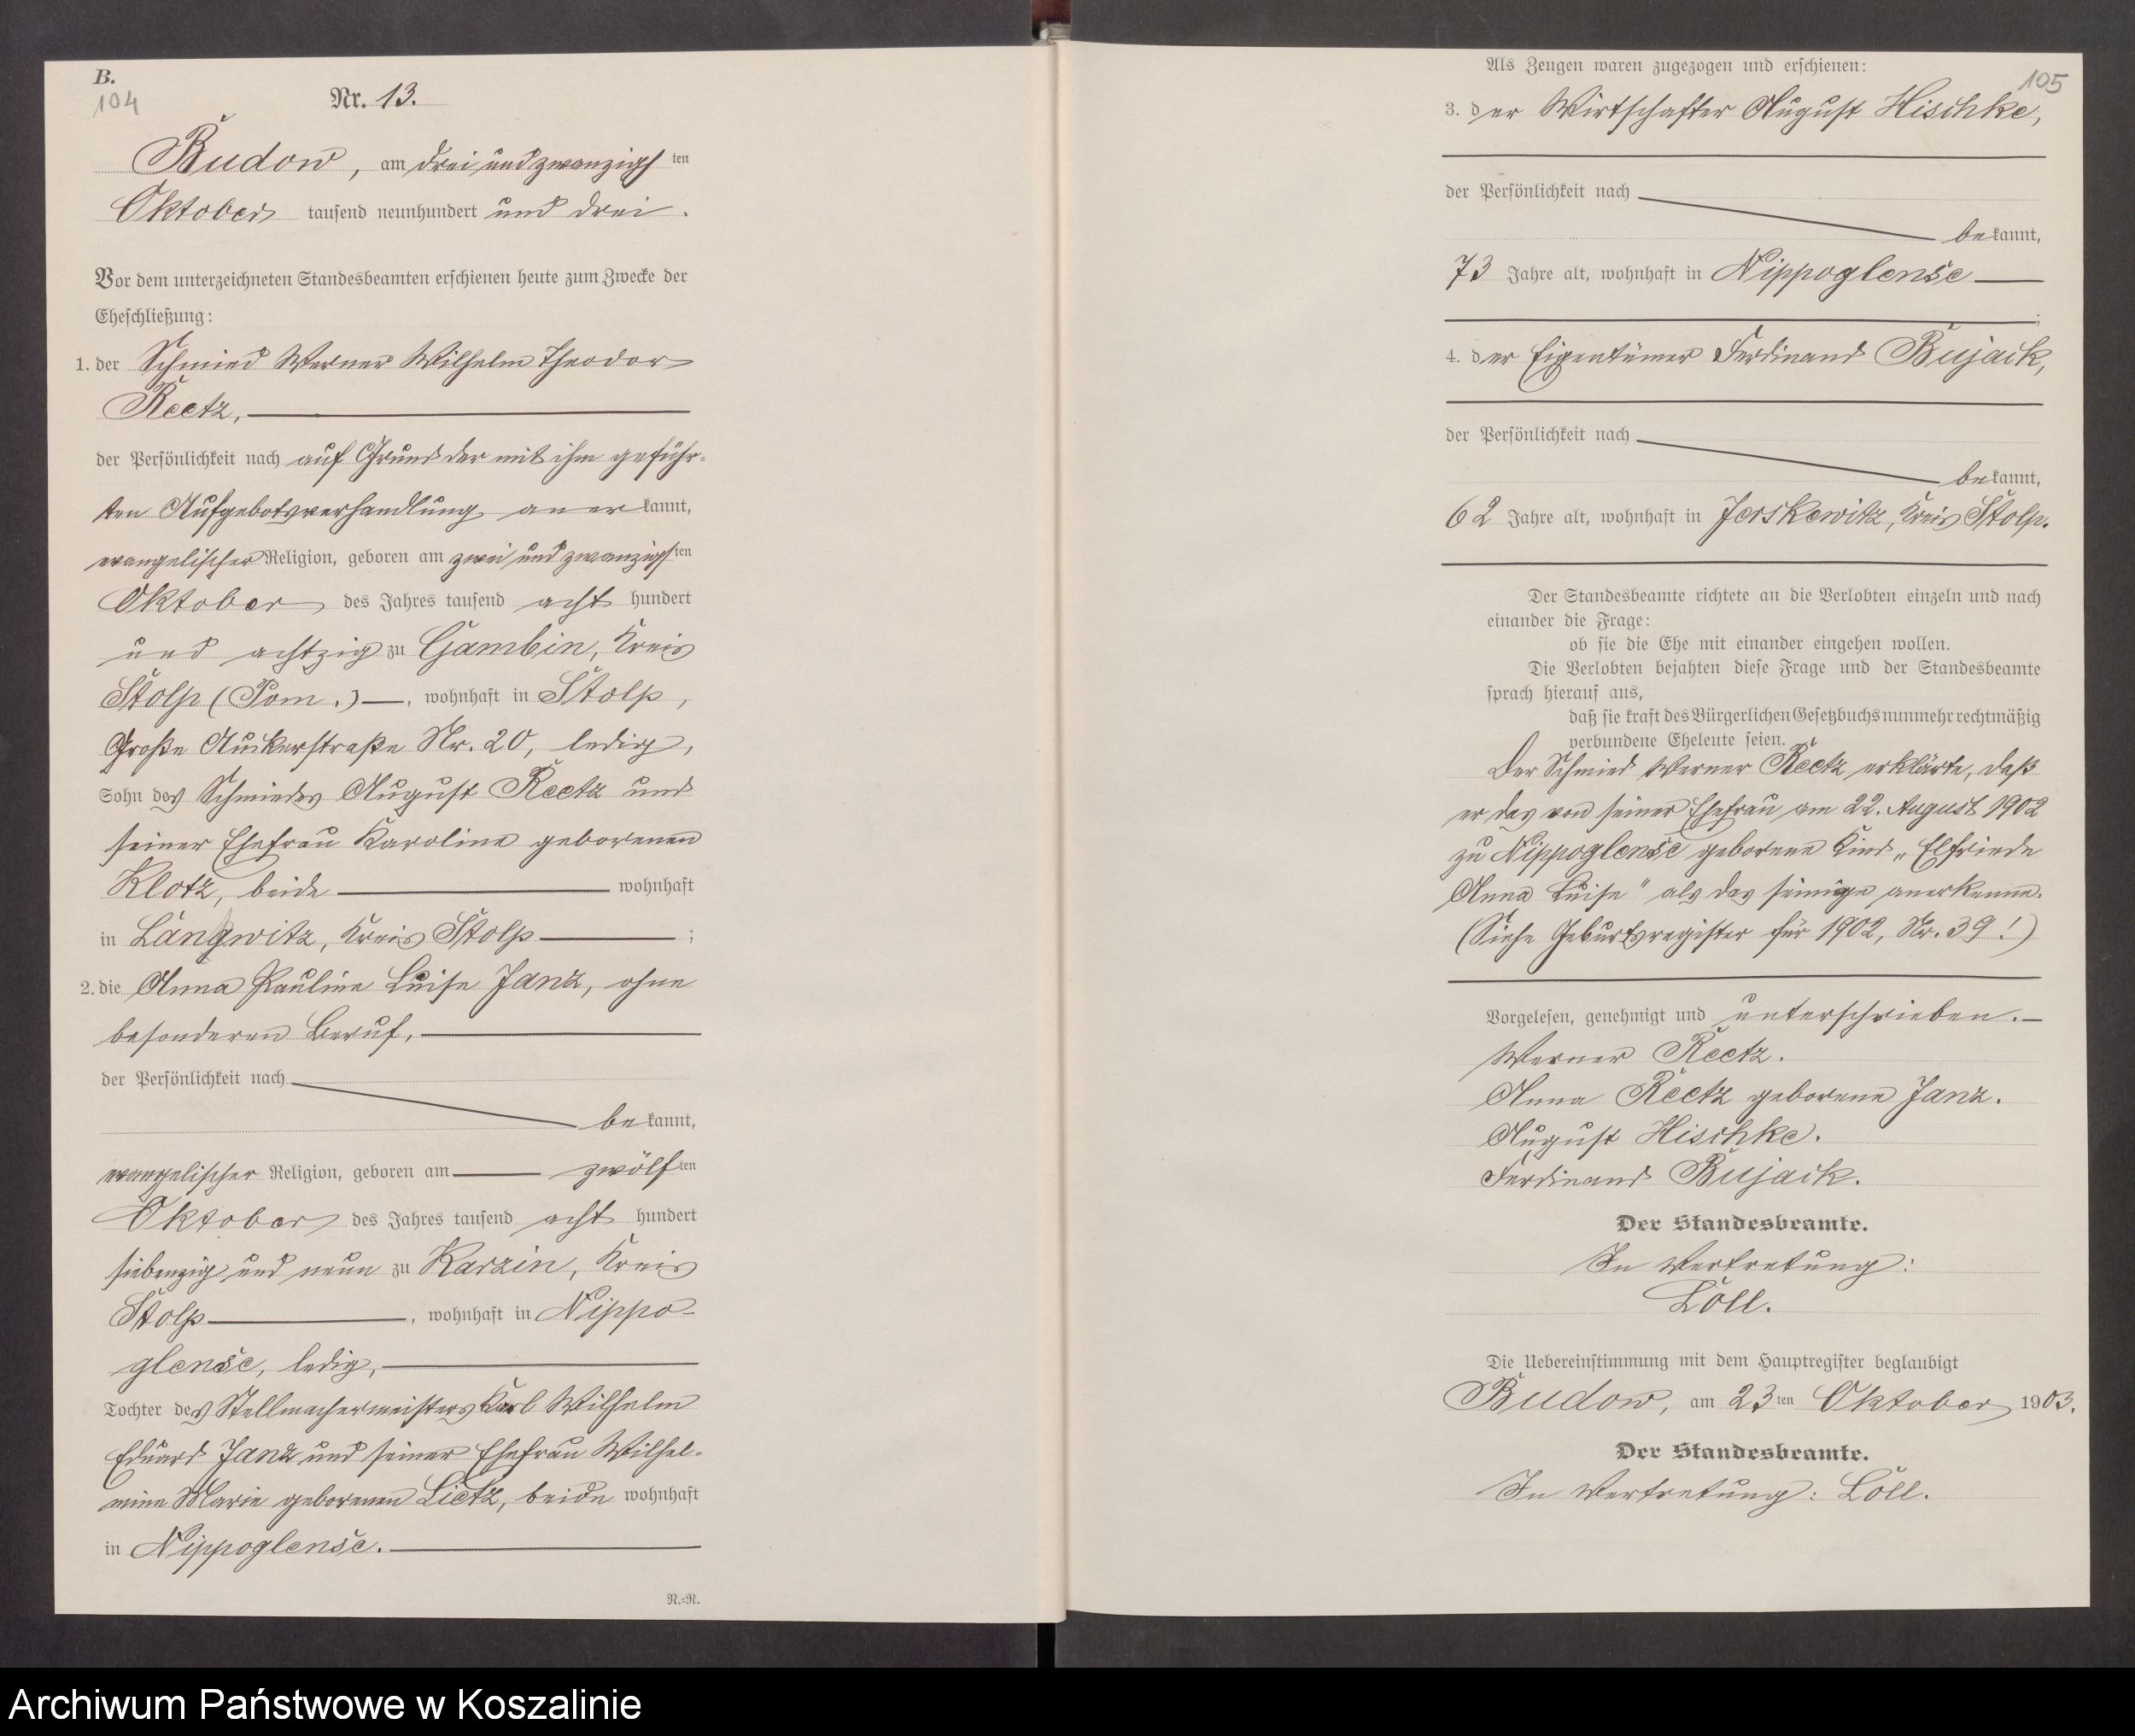 B.
104
Nr. 13.
Budow, am drei und zwanzigsten
Oktober tausend neunhundert und drei.
Vor dem unterzeichneten Standesbeamten erschienen heute zum Zwecke der
Eheschließung:
1. der Schmied Werner Wilhelm Theodor
Reetz,
der Persönlichkeit nach auf Grund der mit ihm geführ-
ten Aufgebotsverhandlung anerkannt,
evangelischer Religion, geboren am zwei und zwanzigsten
Oktober des Jahres tausend acht hundert
und achtzig zu Gambin, Kreis
Stolp (Pom.), wohnhaft in Stolp,
Große Auckerstraße Nr. 20, ledig,
Sohn des Schmiedes August Reetz und
seiner Ehefrau Karoline geborenen
Klotz, beide wohnhaft
in Langwitz, Kreis Stolp;
2. die Anna Pauline Luise Janz, ohne
besonderen Beruf,
der Persönlichkeit nach
bekannt,
evangelischer Religion, geboren am zwölften
Oktober des Jahres tausend acht hundert
siebenzig und neun zu Karzin, Kreis
Stolp, wohnhaft in Nippo-
glense, ledig,
Tochter des Stellmachermeisters Karl Wilhelm
Eduard Janz und seiner Ehefrau Wilhel-
mine Marie geborenen Lietz, beide wohnhaft
in Nippoglense.
N.-N.
105
Als Zeugen waren zugezogen und erschienen:
3. der Wirtschafter August Hischke,
der Persönlichkeit nach
bekannt,
73 Jahre alt, wohnhaft in Nippoglense
;
4. der Eigentümer Ferdinand Bujack,
der Persönlichkeit nach
bekannt,
62 Jahre alt, wohnhaft in Jerskewitz, Kreis Stolp.
Der Standesbeamte richtete an die Verlobten einzeln und nach
einander die Frage:
ob sie die Ehe mit einander eingehen wollen.
Die Verlobten bejahten diese Frage und der Standesbeamte
sprach hierauf aus,
daß sie kraft des Bürgerlichen Gesetzbuchs nunmehr rechtmäßig
verbundene Eheleute seien.
Der Schmied Werner Reetz erklärte, daß
er das von seiner Ehefrau am 22. August 1902
zu Nippoglense geborene Kind „Elfriede
Anna Luise" als das seinige anerkenne.
(Siehe Geburtsregister für 1902, Nr. 39!)
Vorgelesen, genehmigt und unterschrieben.
Werner Reetz.
Anna Reetz geborene Janz.
August Hischke.
Ferdinand Bujack.
Der Standesbeamte.
In Vertretung:
Löll.
Die Uebereinstimmung mit dem Hauptregister beglaubigt
Budow, am 23ten Oktober 1903.
Der Standesbeamte.
In Vertretung: Löll.
Archiwum Państwowe w Koszalinie